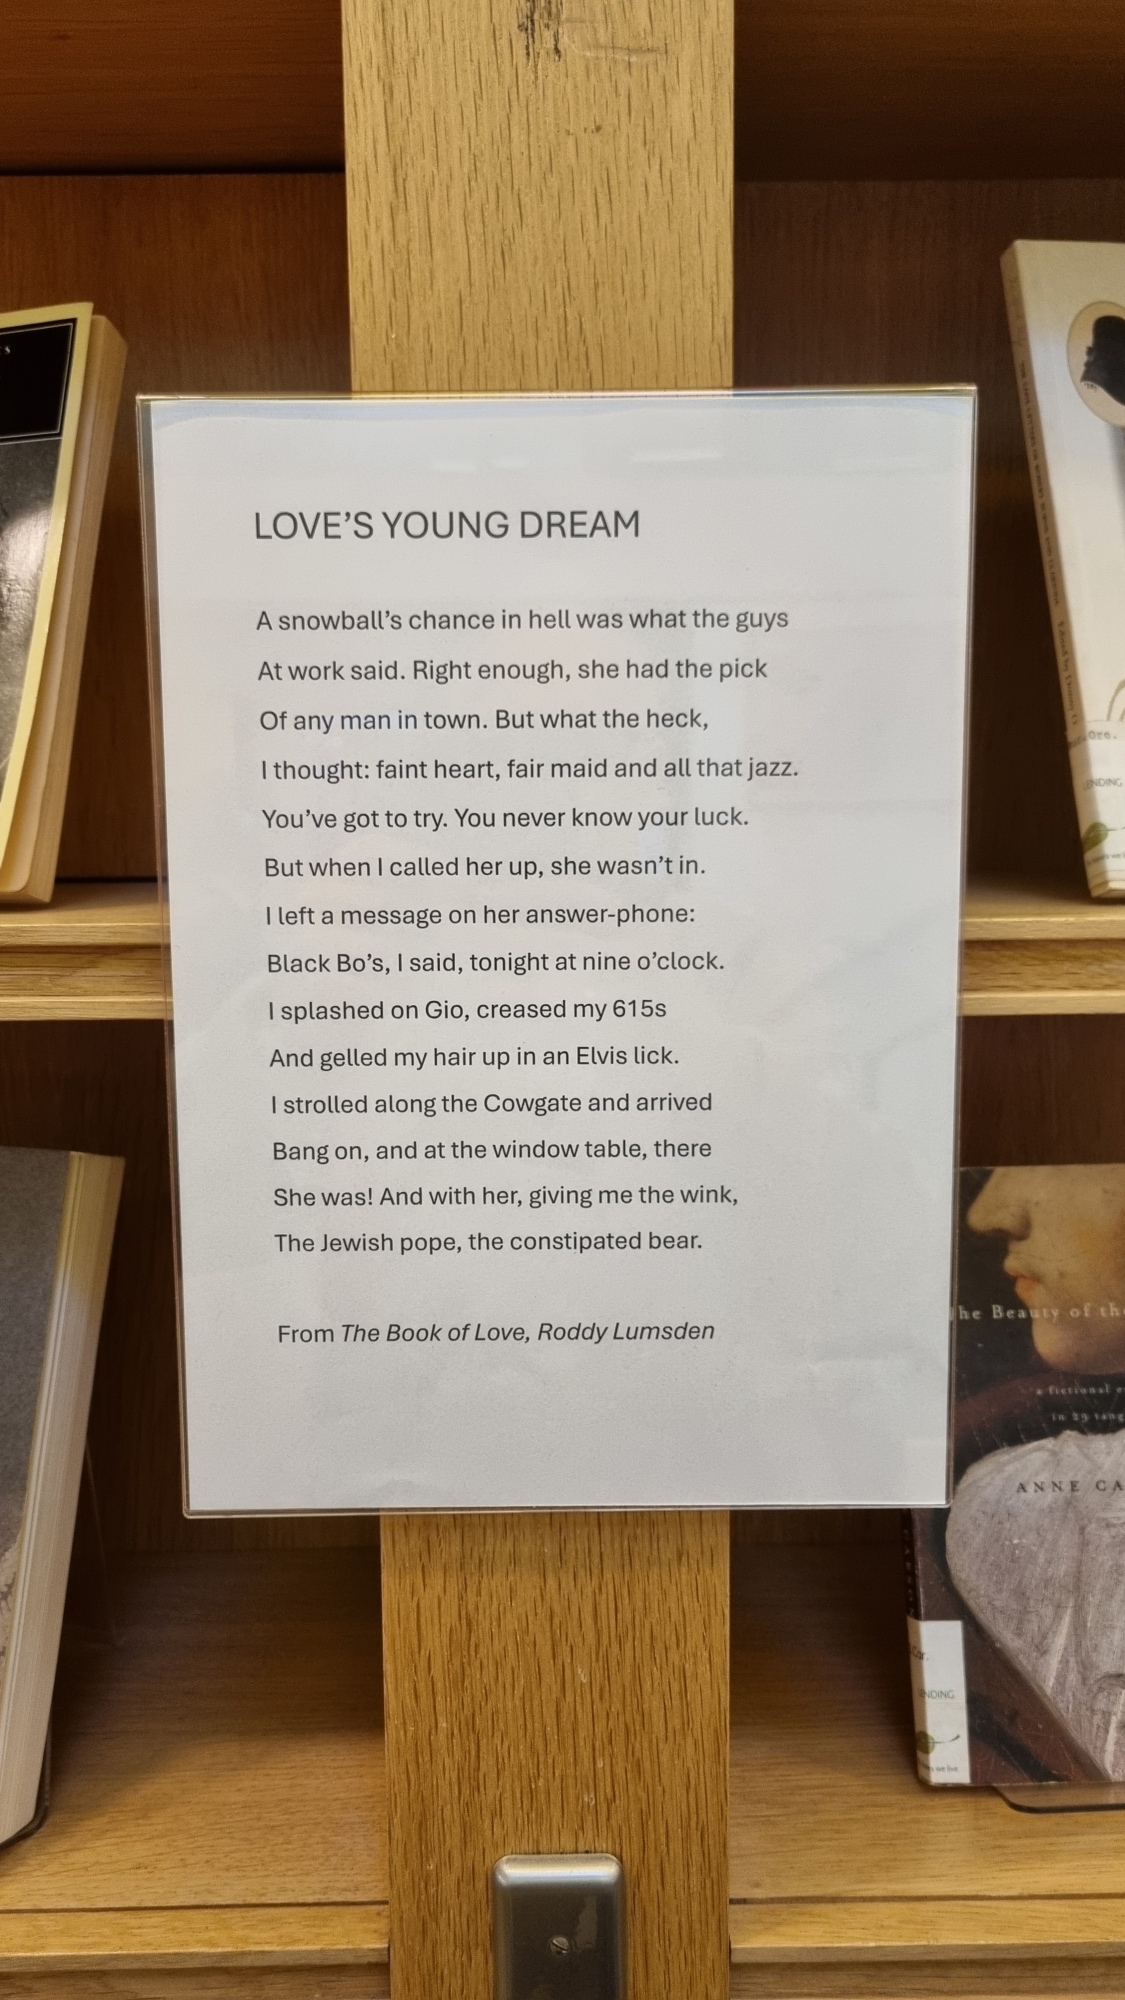 LOVE'S YOUNG DREAM
A snowball's chance in hell was what the guys
At work said. Right enough, she had the pick
Of any man in town. But what the heck,
I thought: faint heart, fair maid and all that jazz.
You've got to try. You never know your luck.
But when I called her up, she wasn't in.
I left a message on her answer-phone:
Black Bo's, I said, tonight at nine o'clock.
I splashed on Gio, creased my 615s
And gelled my hair up in an Elvis lick.
I strolled along the Cowgate and arrived
Bang on, and at the window table, there
She was! And with her, giving me the wink,
The Jewish pope, the constipated bear.
From The Book of Love, Roddy Lumsden
he Beauty of the
a fictional
in 29 tang
ANNE CA
LENDING
ENDING